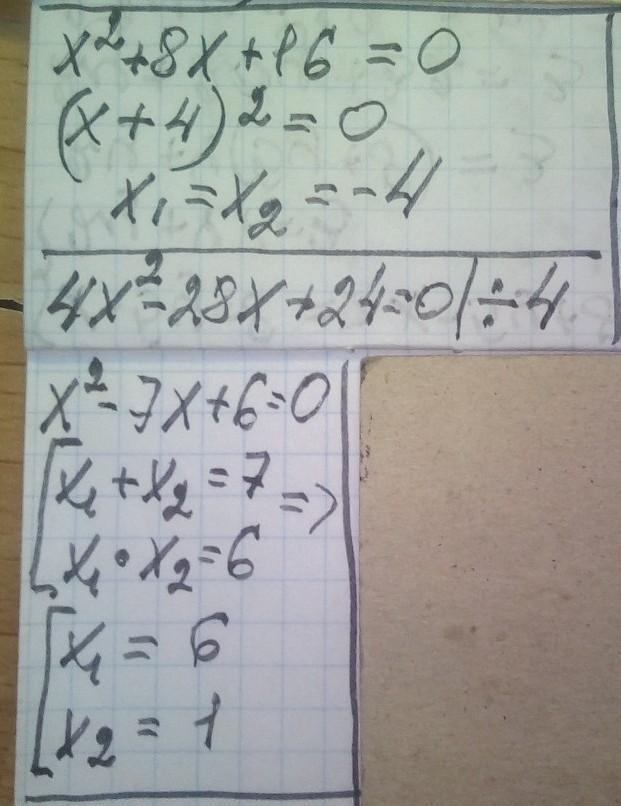 x²+8x+16=0
(x+4)²=0
x₁=x₂=-4
4x²-28x+24=0|÷4
x²-7x+6=0
[x₁+x₂=7
x₁•x₂=6 =>
[x₁=6
x₂=1